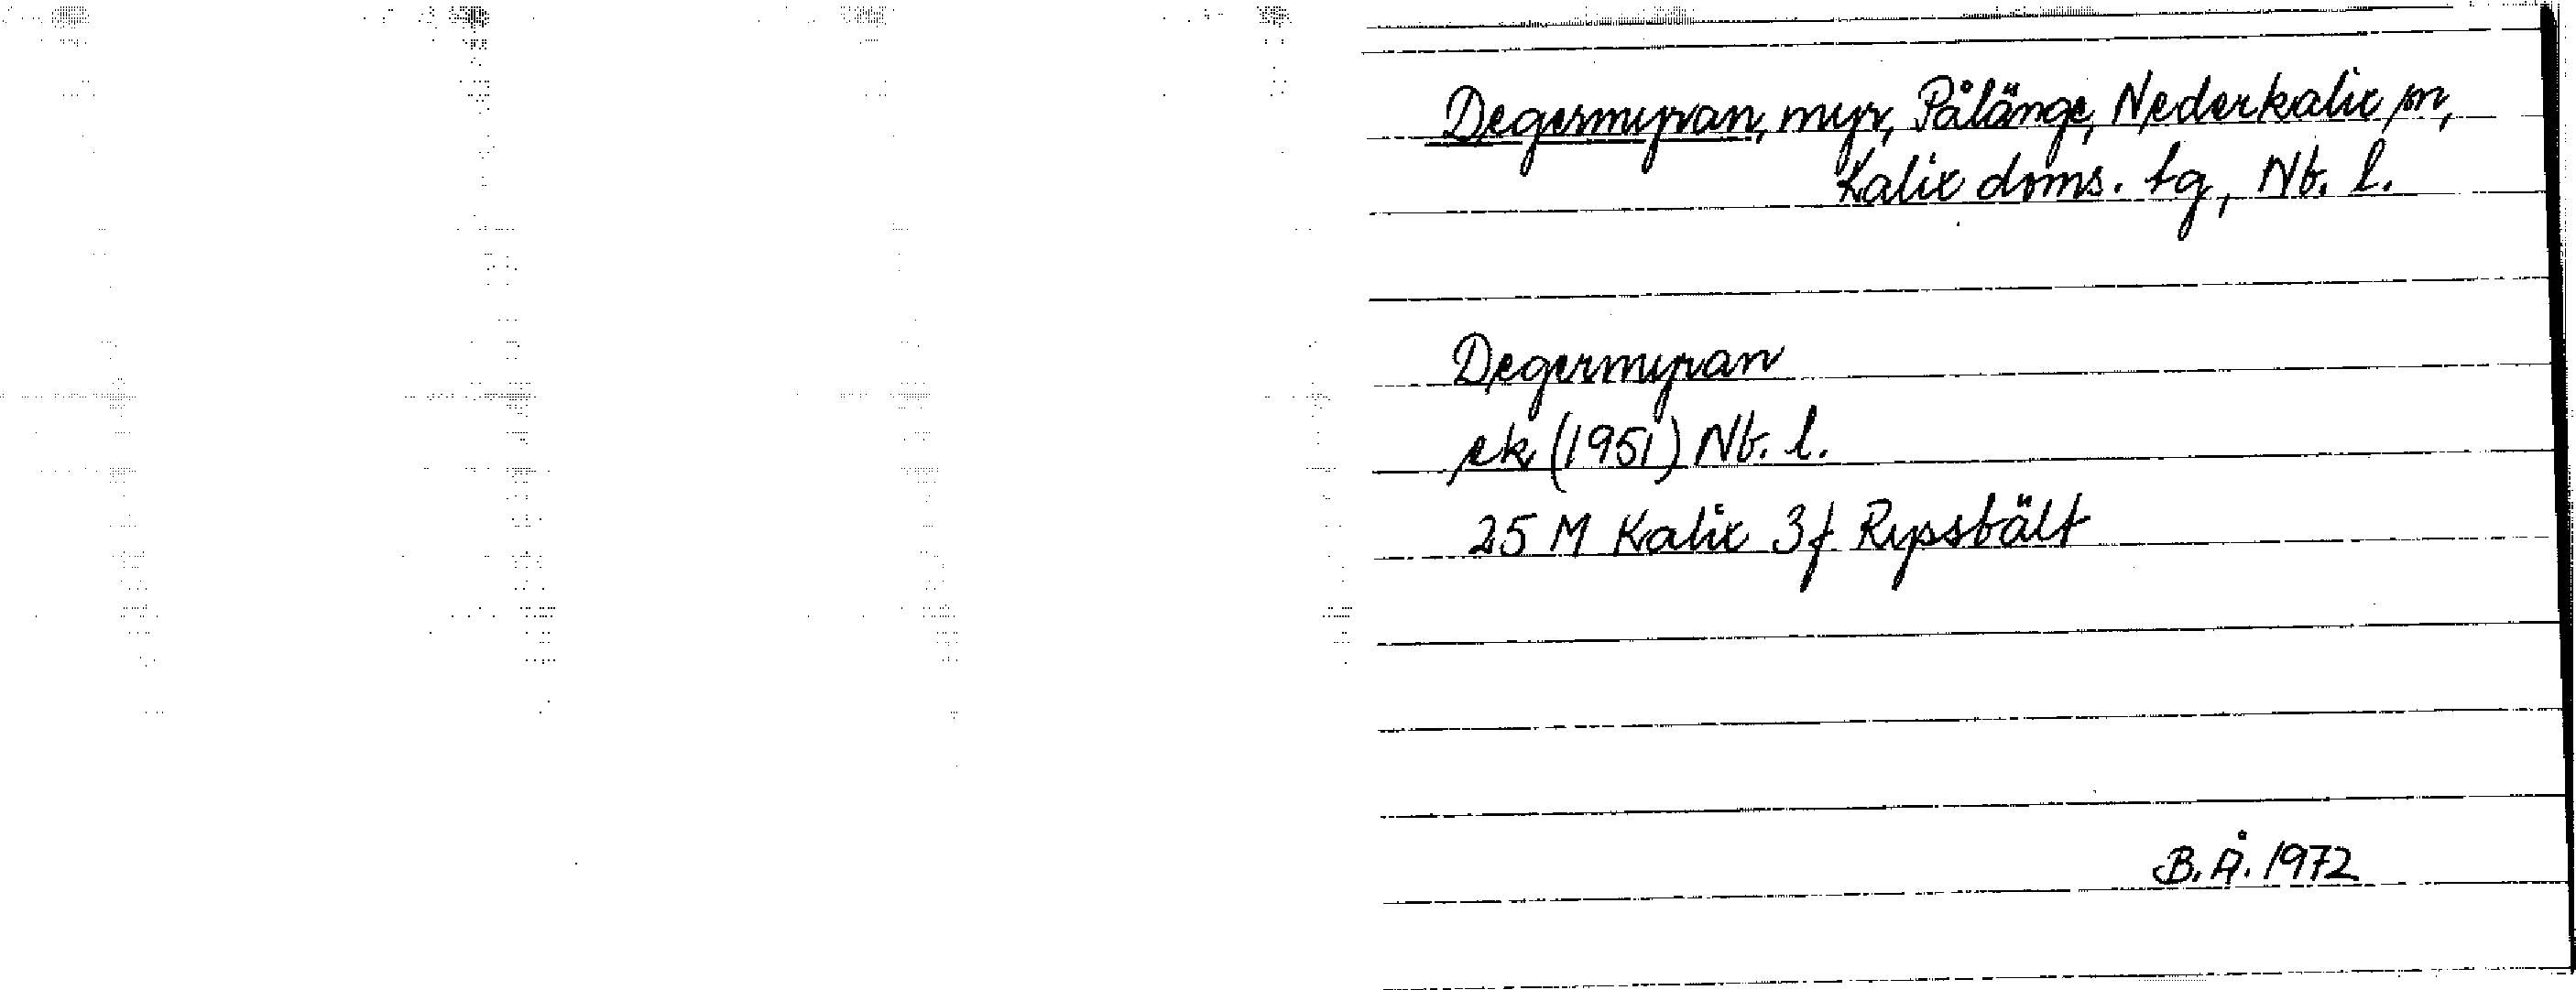 Degermyran, myr, Pålänge, Nederkalix sn,
Kalix doms. tg, Nb. l.
Degermyran
ek (1951) Nb. l.
25 M Kalix 3f Ryssbält
B. Å. 1972